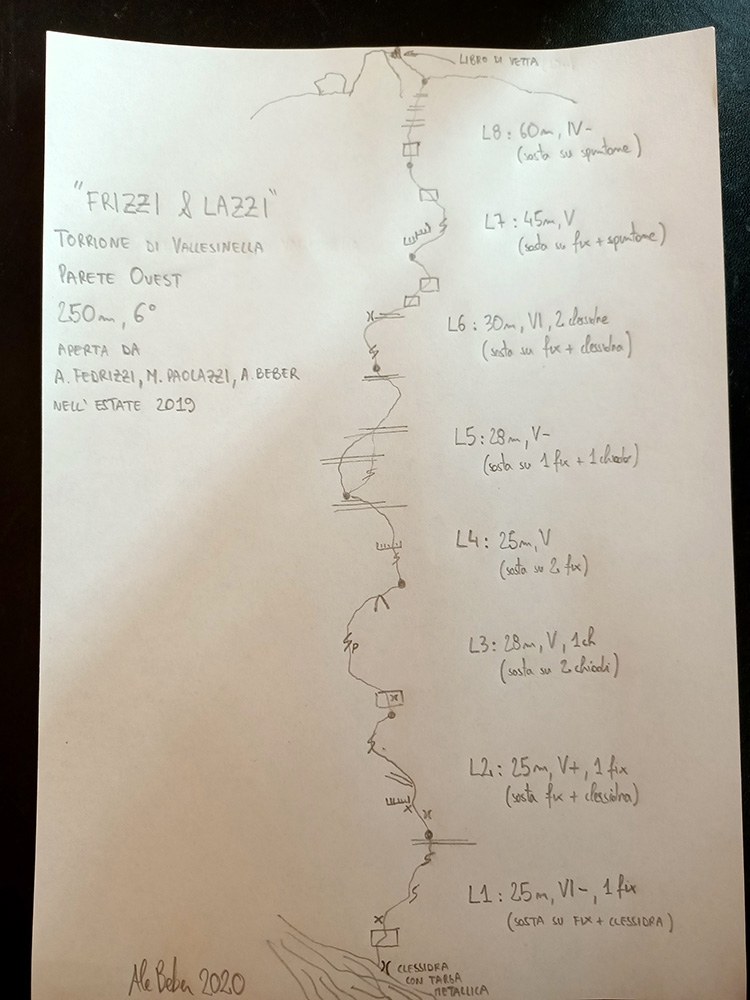 LIBRO DI VETTA
L8: 60m, IV-
(sosta su spuntone)
"FRIZZI & LAZZI"
TORRIONE DI VALLESINELLA
PARETE OVEST
250m, 6°
APERTA DA
A. FEDRIZZI, M. PAOLAZZI, A. BEBER
NELL'ESTATE 2019
L7: 45m, V
(sosta su fix + spuntone)
L6: 30m, VI, 2 clessidre
(sosta su fix + clessidra)
L5: 28m, V-
(sosta su 1 fix + 1 chiodo)
L4: 25m, V
(sosta su 2 fix)
L3: 28m, V, 1ch
(sosta su 2 chiodi)
P
L2: 25m, V+, 1 fix
(sosta fix + clessidra)
L1: 25m, VI-, 1 fix
(SOSTA SU FIX + CLESSIDRA)
CLESSIDRA
CON TARGA
METALLICA
Ale Beber 2020